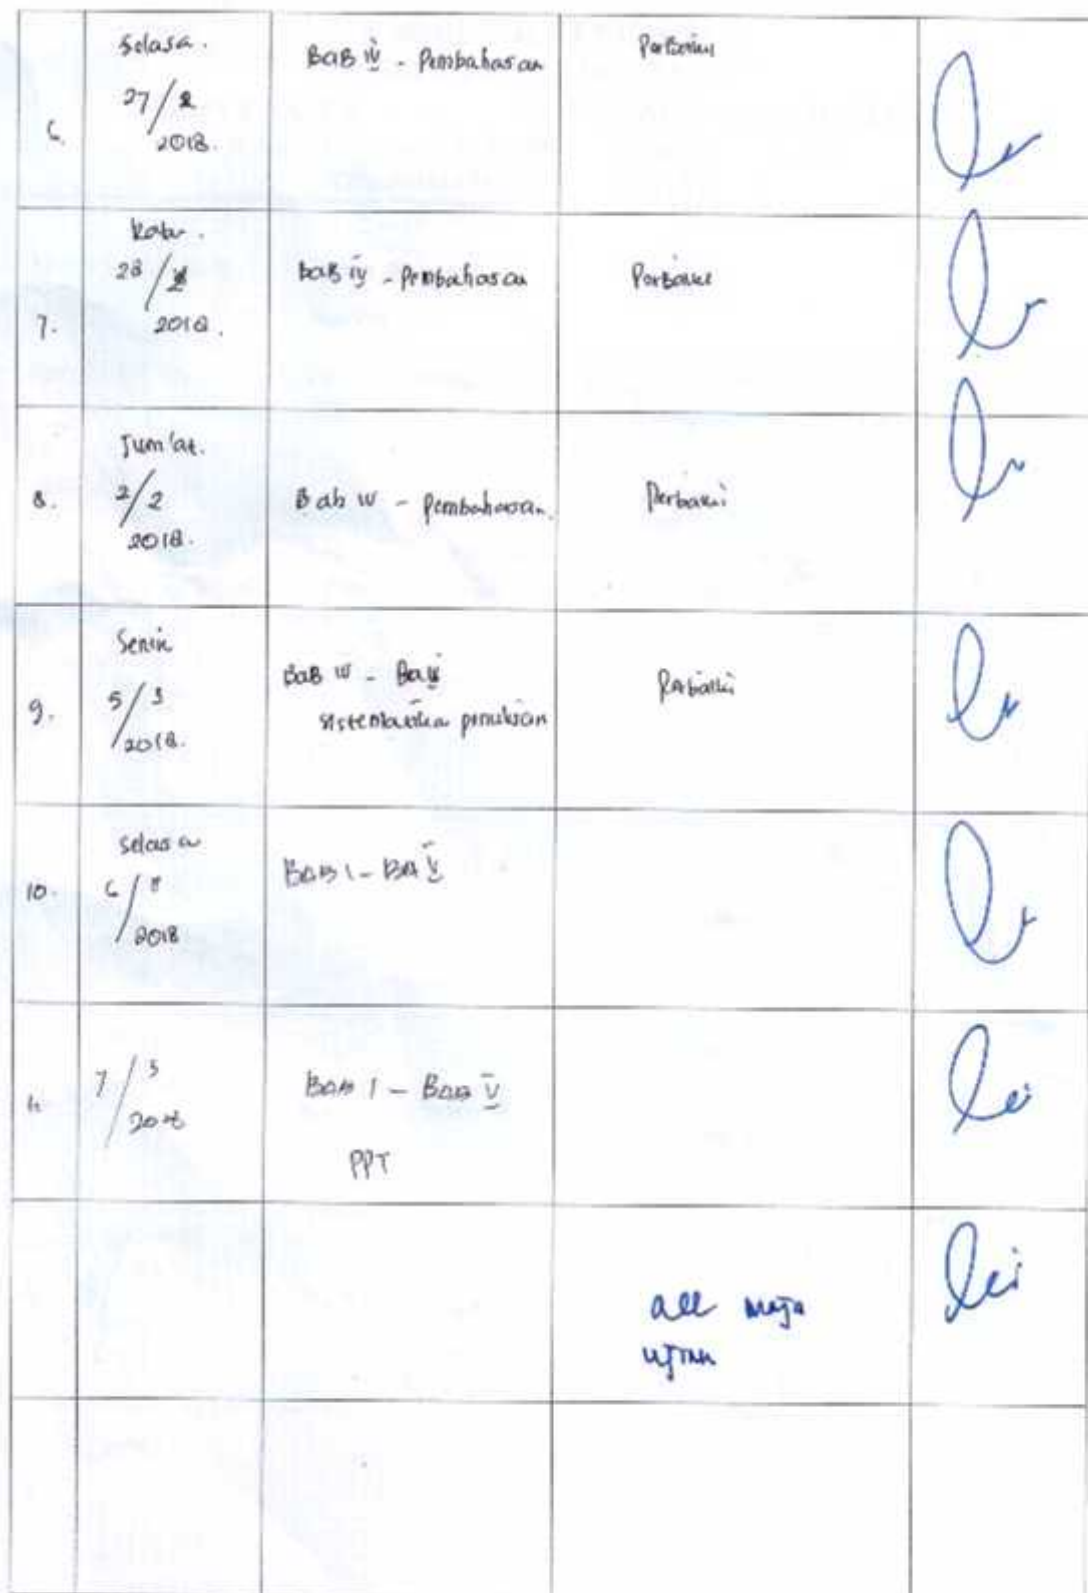 6.
Selasa.
27/2
2018.
BAB IV - Pembahasan
Perbaiki
7.
Rabu.
28/2
2018.
BAB IV - Pembahasan
Perbaiki
8.
Jum'at.
2/2
2018.
Bab IV - Pembahasan.
Perbaiki
9.
Senin
5/3
2018.
BAB IV - Bab V
sistematika penulisan
Perbaiki
10.
Selasa
6/
2018
BAB I - BA V
11.
7/3
2018
BAB I - BAB V
PPT
all maju
ujian